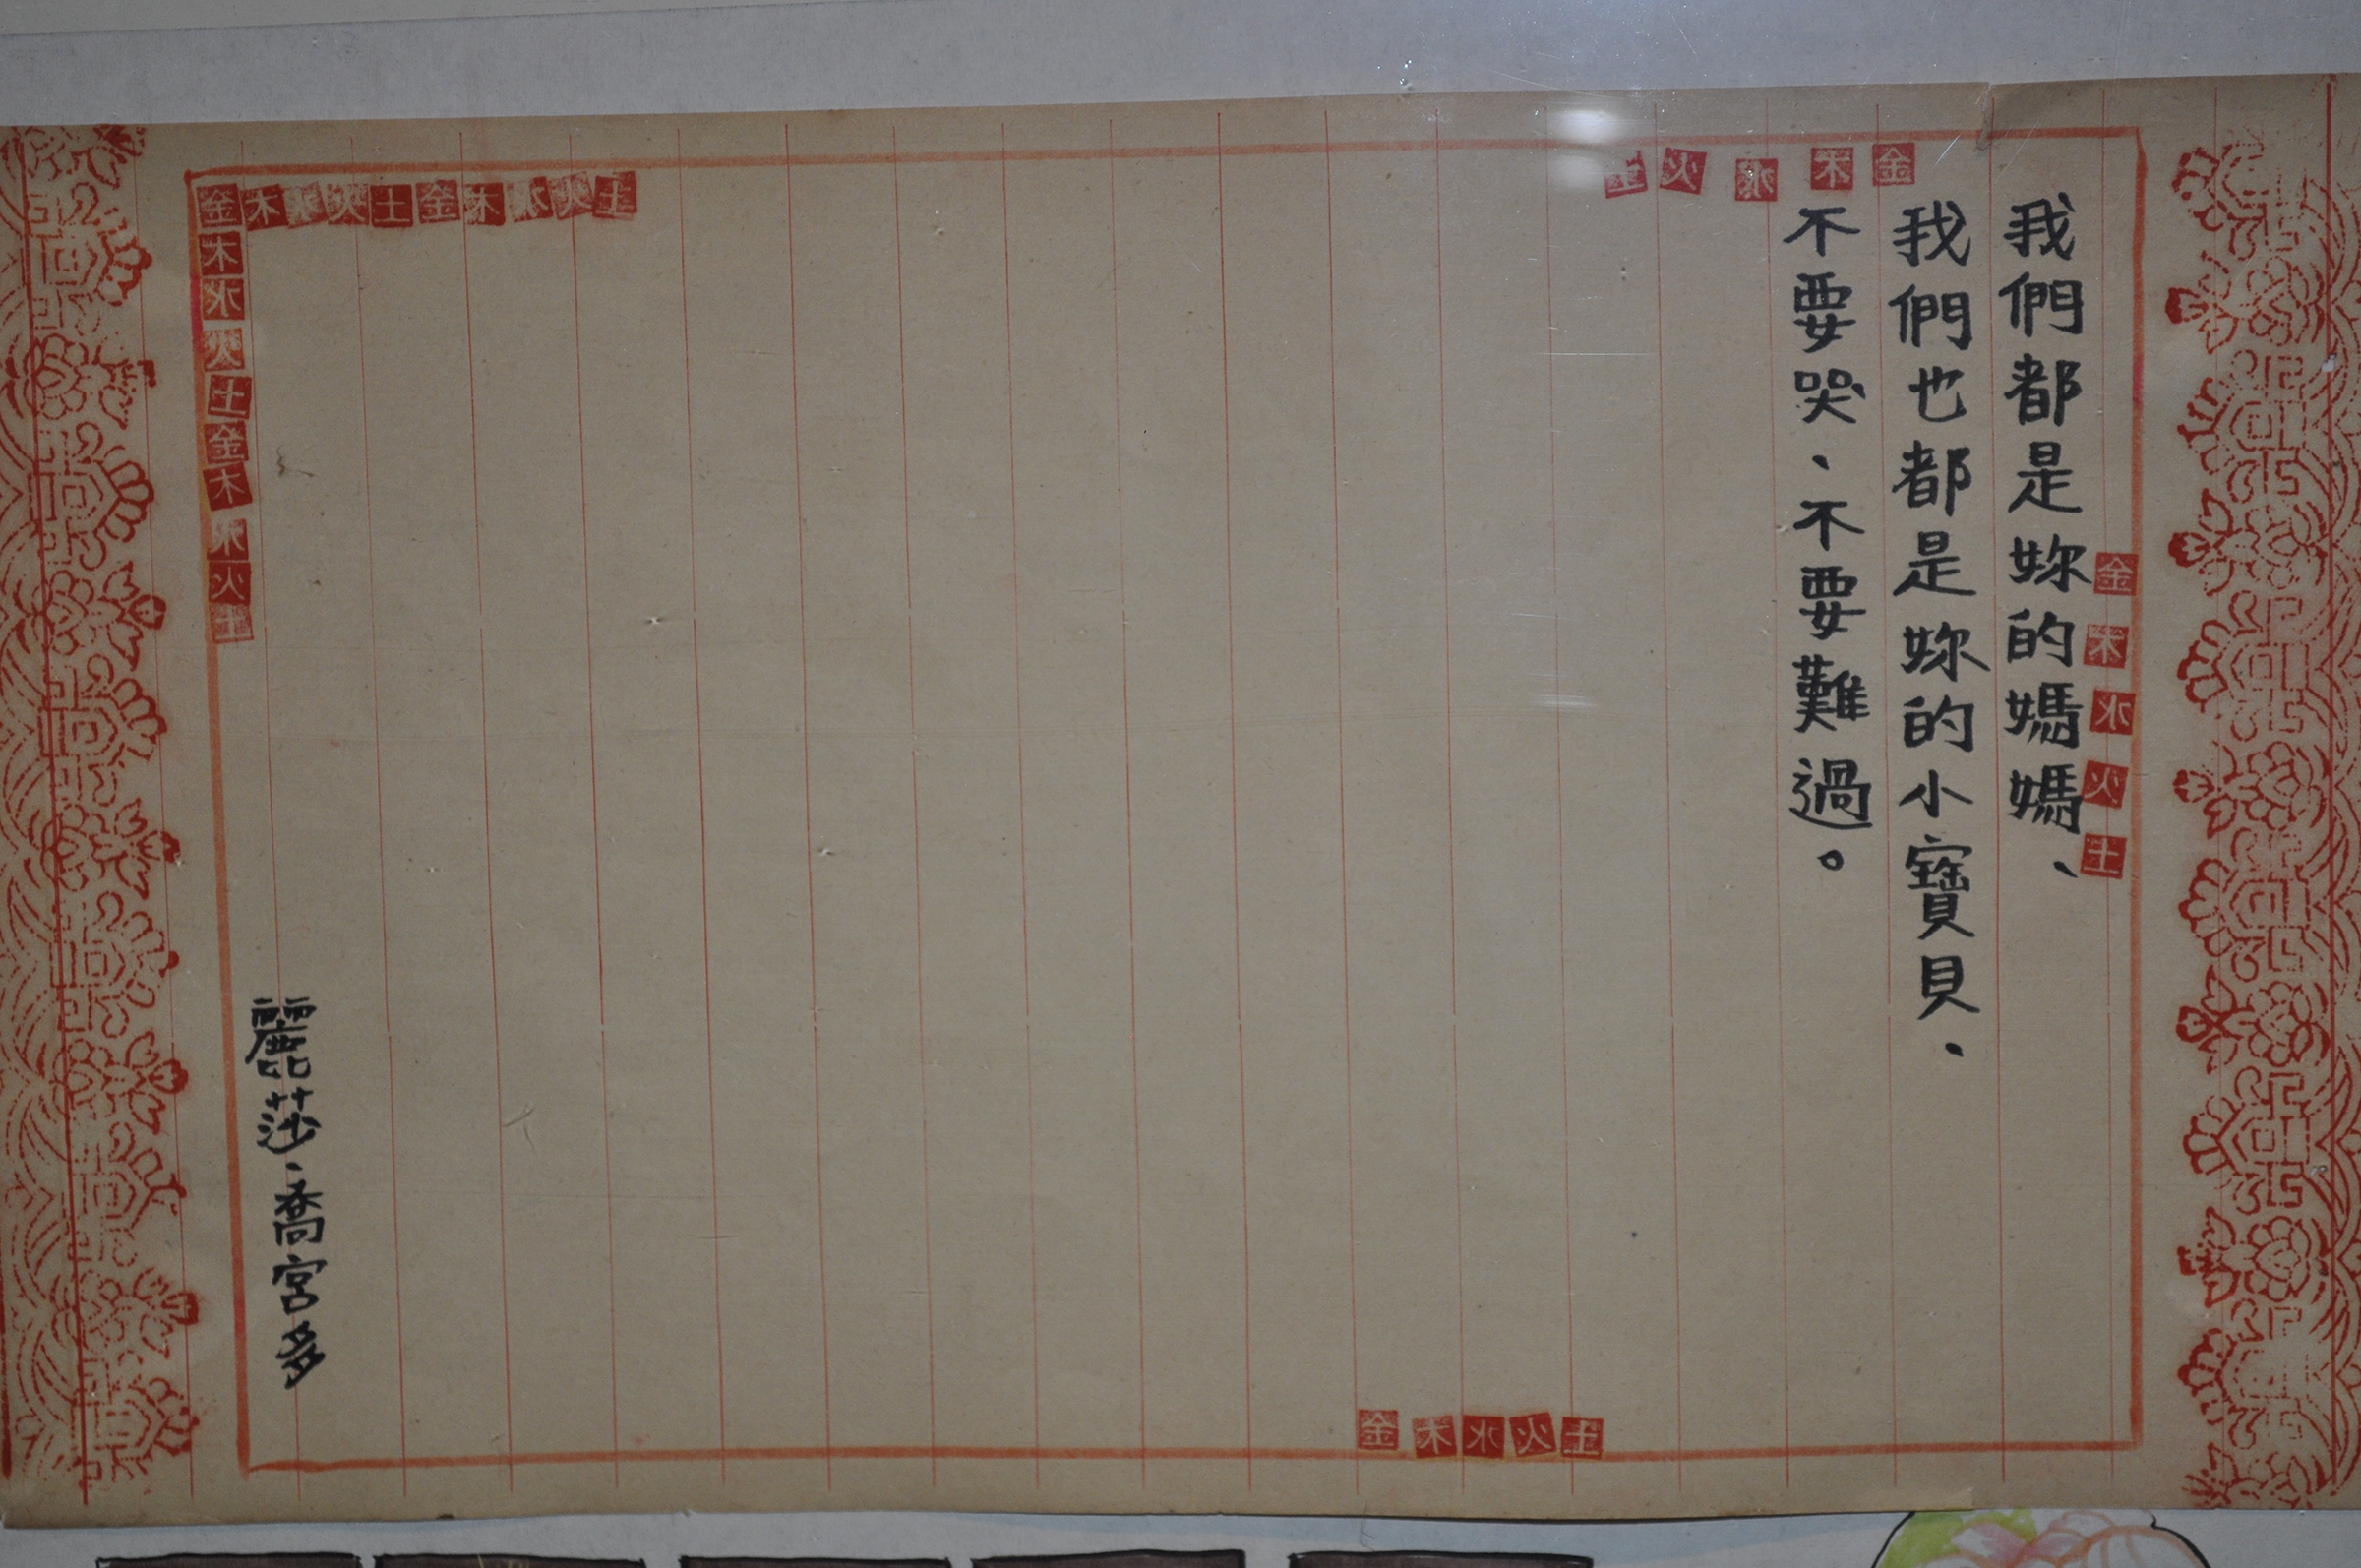 我們都是妳的媽媽、
我們也都是妳的小寶貝、
不要哭、不要難過。
麗莎·喬宮多
金木水火土
金木水火土
金木水火土金木水火土
木水火土金木水火土
金木水火土